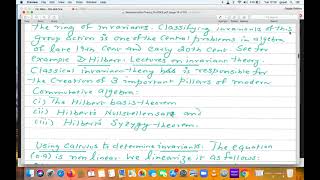 the ring of invariants. Classifying invariants of this
group action is one of the central problems in algebra
of late 19th Cent and early 20th Cent. See for
example D Hilbert: Lectures on invariant theory.
Classical invariant theory has is responsible for
the Creation of 3 important pillars of modern
Commutative algebra:
(i) The Hilbert basis theorem
(ii) Hilbert's Nullstellensatz and
(iii) Hilbert's Syzygy theorem.
Using calculus to determine invariants: The equation
is non linear. We linearize it as follows: